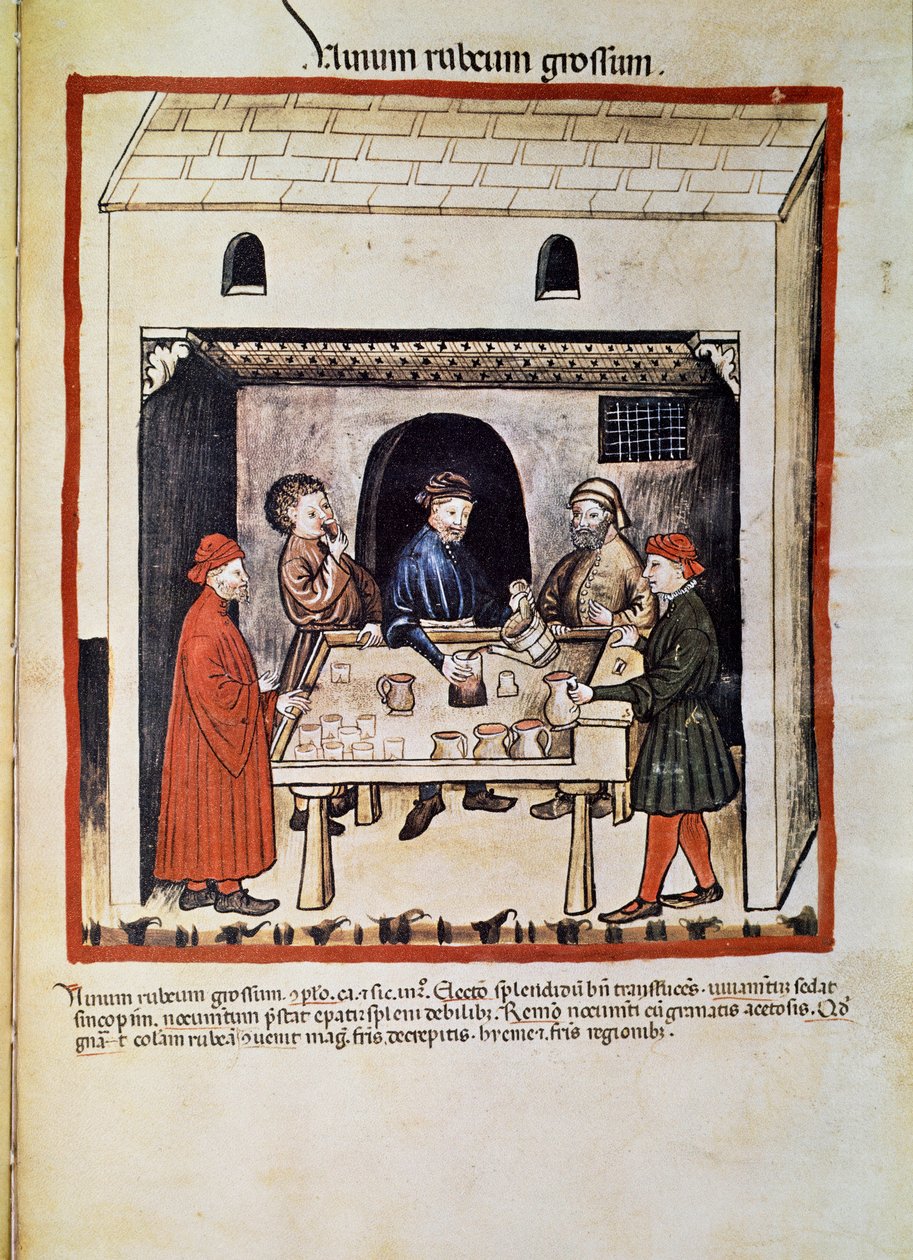 Uinum rubeum grossum.
Uinum rubeum grossum. ꝯplo. ca. ⁊ sic. in 2º. Electo splendidũ bñ transluces. iuuamtũ sedat
sincopim. nocumtum p̃stat epati spleni debilibꝫ. Remo nocumti cũ granatis acetosis. Qd
gnã̃t colam rubeã ꝯuenit mag. fris. decrepitis. hyeme ⁊. fris regionibꝫ.